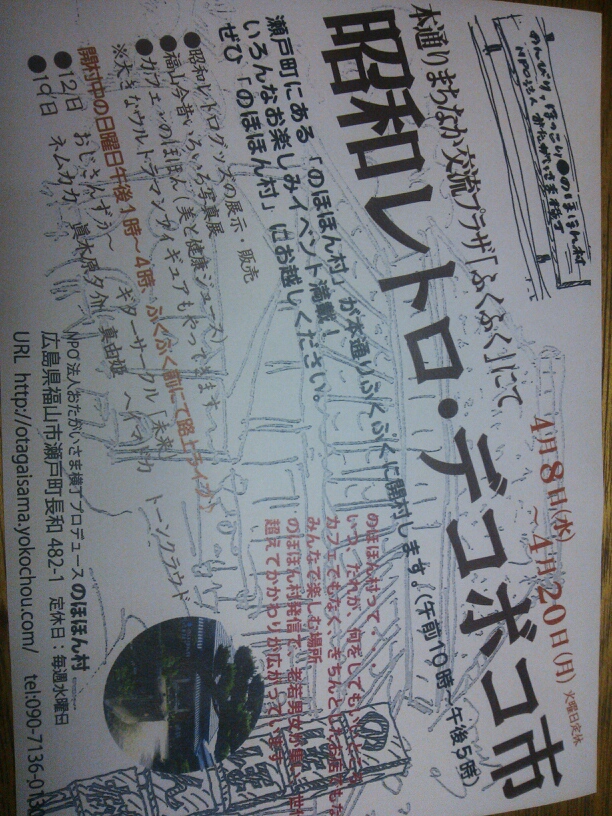 のんびり、ほっこり●のほほん村
NPO法人 おたがいさま横丁
本通りまちなか交流プラザ「ふくふく」にて
4月8日(水)
～4月20日(月)
火曜日定休
昭和レトロ・デコボコ市
瀬戸町にある「のほほん村」が本通りふくふくに開村します。(午前10時～午後5時)
いろんなお楽しみイベント満載!
ぜひ「のほほん村」にお越しください。
●昭和レトログッズの展示・販売
●福山今昔いろいろ写真展
●カフェ・ののほほん(美と健康ジュース)
※大きなウルトラマンフィギュアもやってきます
開村中の日曜日午後1時～4時、ふくふく前にて路上ライブ♪
●12日 おじさんずぅ～ ギターサークル「未来」 トーンクラウド
●19日 ネムカカ 真木原夕介 真由姫
のほほん村って・・・
いつ、だれが、何をしても
カフェでもなく、きちんとしたお店でもな
みんなで楽しむ場所
のほほん村発信で、老若男女が集い、世代
超えてかかわりが広がっています
NPO法人おたがいさま横丁プロデュース のほほん村
広島県福山市瀬戸町長和 482-1 定休日:毎週水曜日
URL http://otagaisama.yokochou.com/ tel:090-7136-013